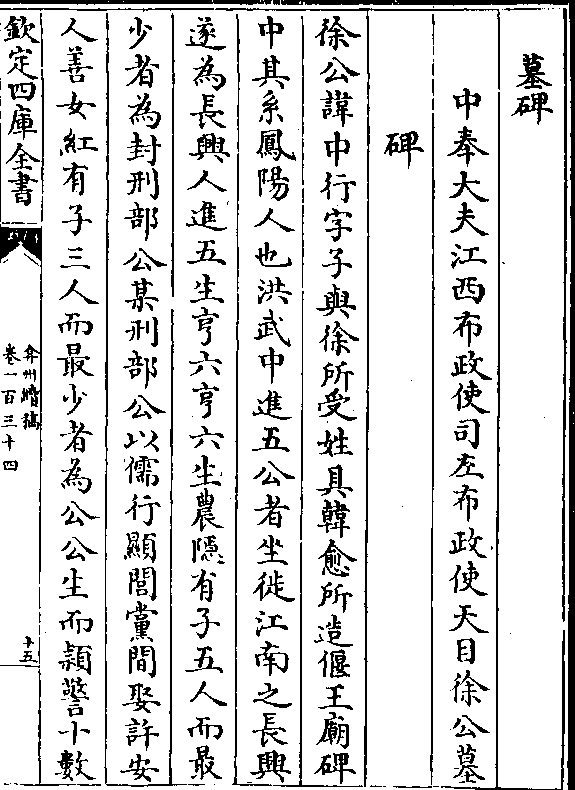 墓碑
中奉大夫江西布政使司左布政使天目徐公墓
碑
徐公諱中行字子與徐所受姓具韓愈所造偃王廟碑
中其系鳳陽人也洪武中進五公者坐徙江南之長興
遂為長興人進五生亨六亨六生農隱有子五人而最
少者為封刑部公某刑部公以儒行顯閭黨間娶許安
人善女紅有子三人而最少者為公公生而穎警十數
欽定四庫全書
弇州續稿
卷一百三十四
十五